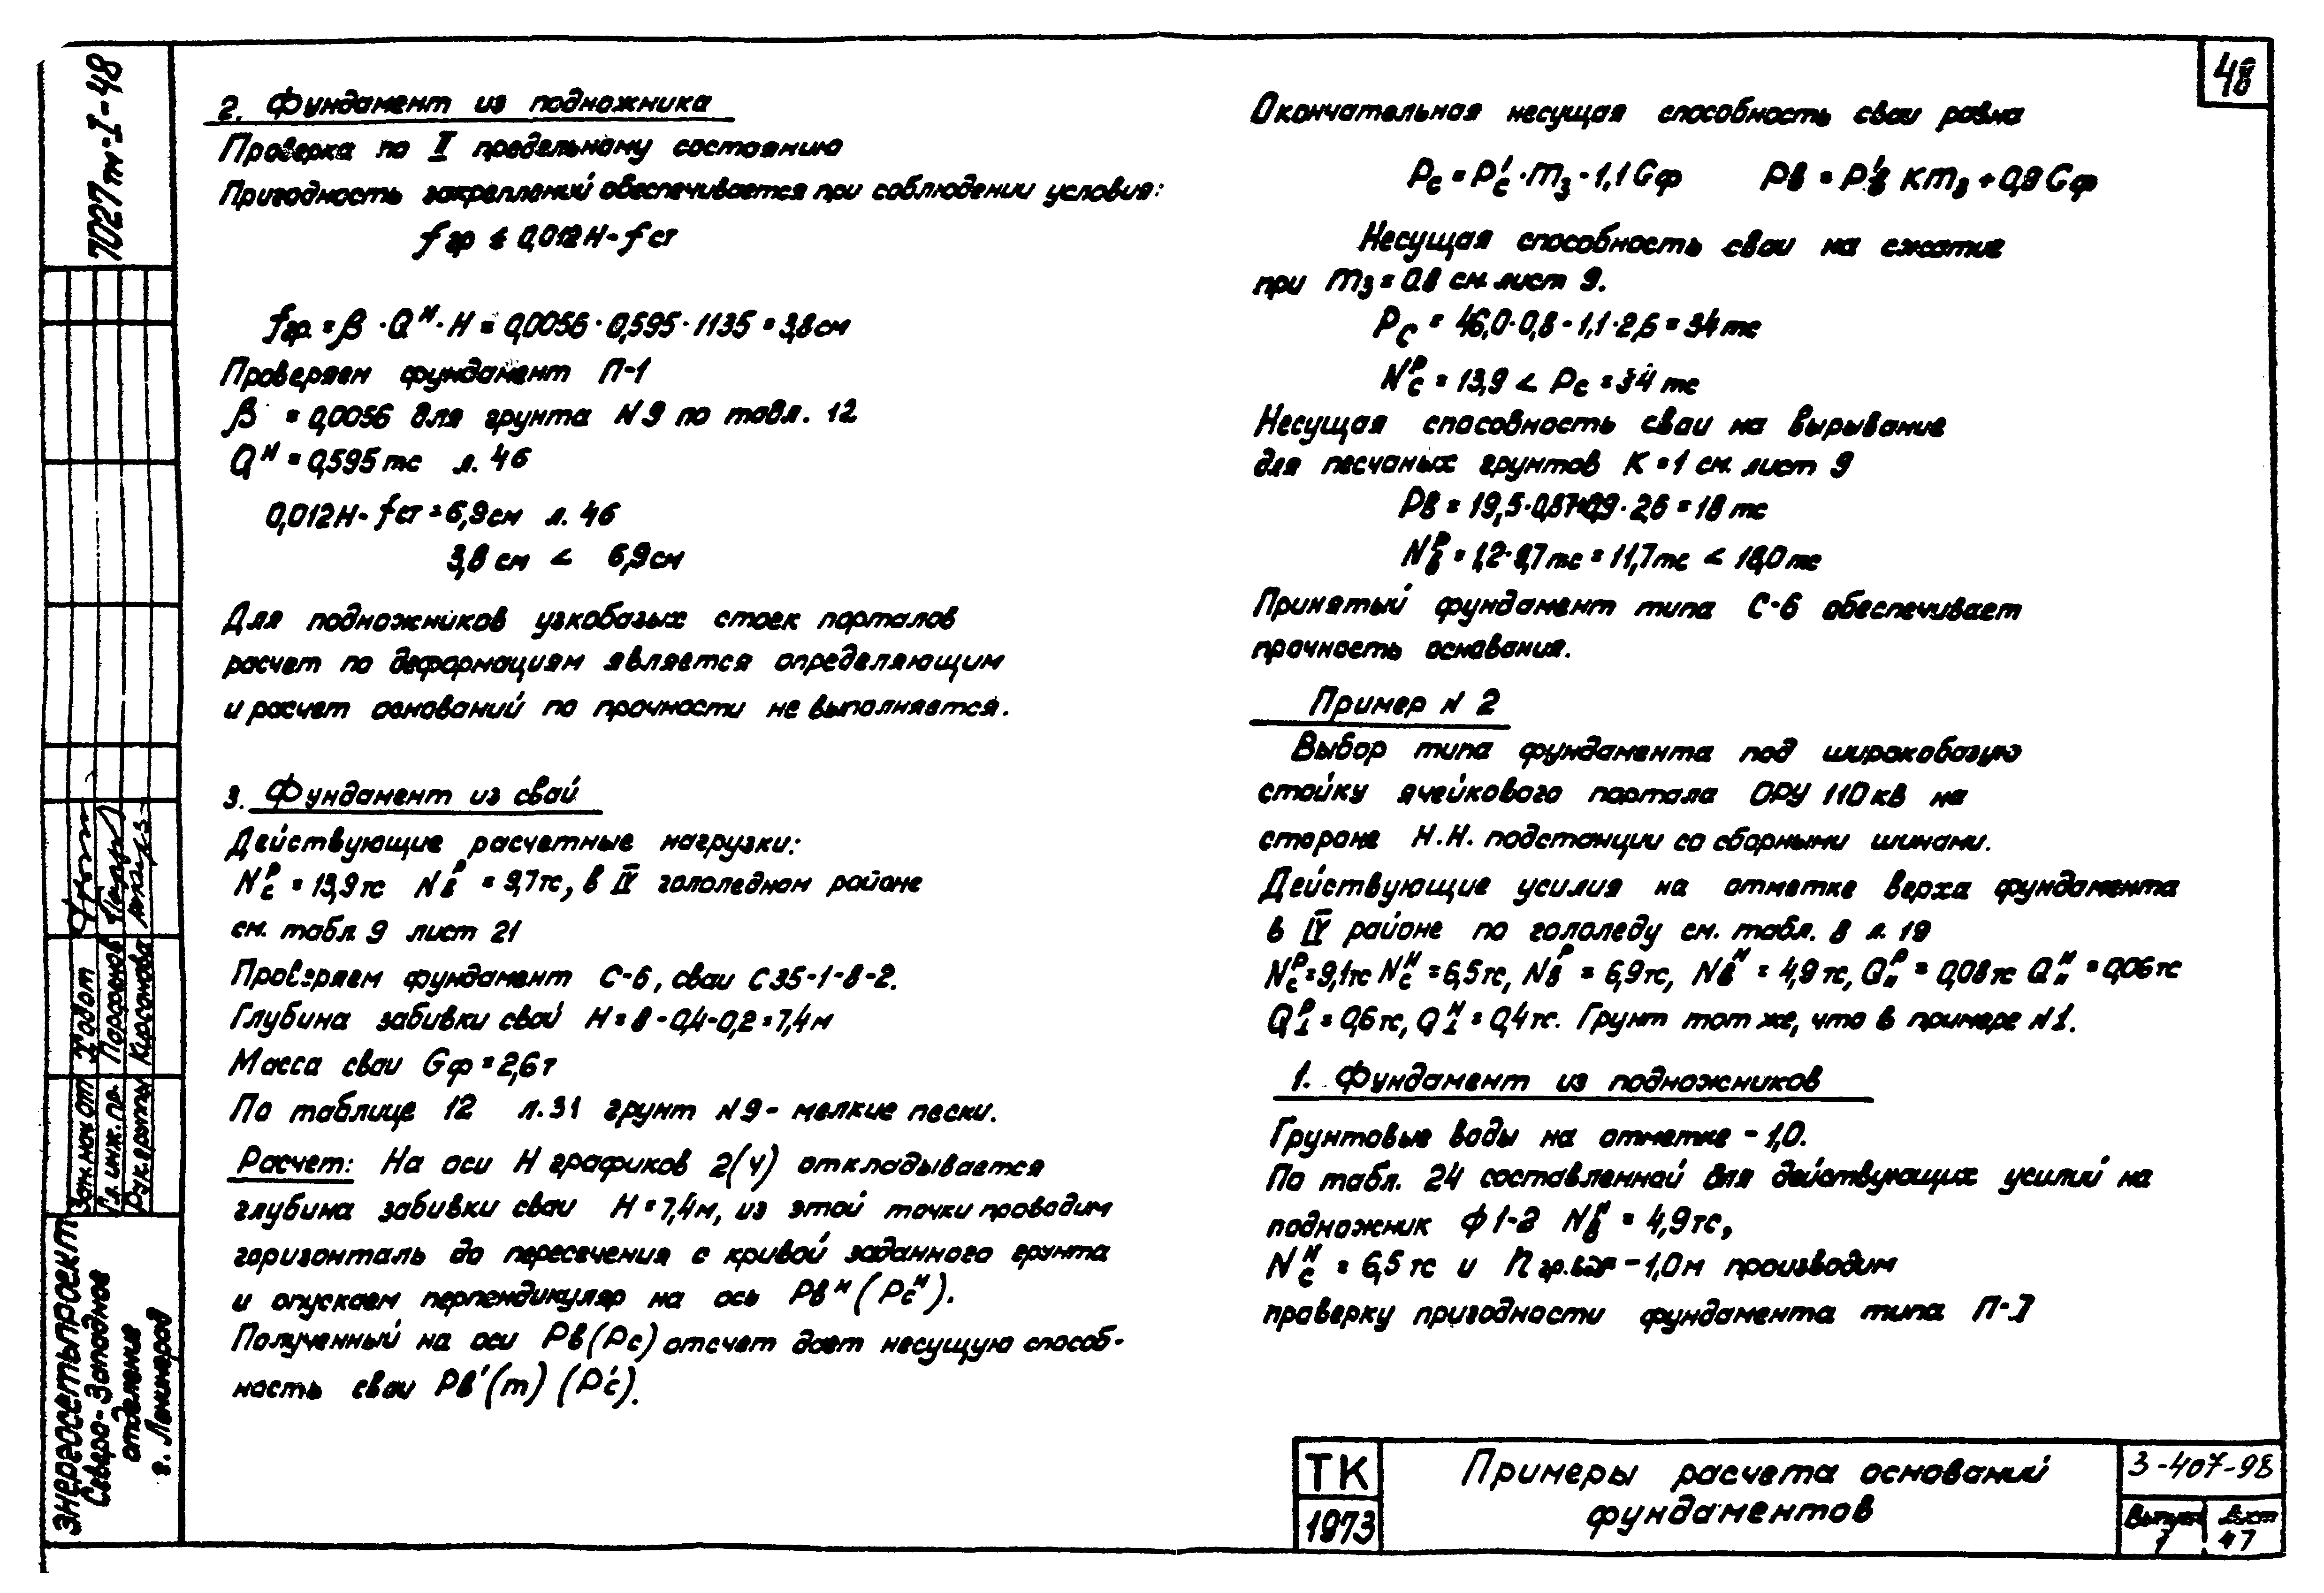 7027тм-I-48
48
2. Фундамент из подножника
Проверка по II предельному состоянию
Пригодность закреплений обеспечивается при соблюдении условия:
fгр ≤ 0,012H-fст
fгр. = β · Qᴴ · H = 0,0056 · 0,595 · 1135 = 3,8см
Проверяем фундамент П-1
β = 0,0056 для грунта N9 по табл. 12
Qᴴ = 0,595тс л. 46
0,012H- fст = 6,9см л. 46
3,8 см < 6,9см
Для подножников узкобазых стоек порталов
расчет по деформациям является определяющим
и расчет оснований по прочности не выполняется.
3. Фундамент из свай
Действующие расчетные нагрузки:
Nсᴾ = 13,9тс Nвᴾ = 9,7тс, в IV гололедном районе
см. табл. 9 лист 21
Проверяем фундамент С-6, сваи С35-1-8-2.
Глубина забивки свай H = 8-0,4-0,2 = 7,4м
Масса сваи Gф = 2,6т
По таблице 12 л. 31 грунт N9 - мелкие пески.
Расчет: На оси H графиков 2(ч) откладывается
глубина забивки сваи H = 7,4м, из этой точки проводим
горизонталь до пересечения с кривой заданного грунта
и опускаем перпендикуляр на ось Рвᴴ (Рсᴴ).
Полученный на оси Рв (Рс) отсчет дает несущую способ-
ность сваи Рв' (т) (Р'с).
Окончательная несущая способность сваи равна
Рс = Р'с · m₃ - 1,1 Gф Рв = Р'в Km₃ + 0,9 Gф
Несущая способность сваи на сжатие
при m₃ = 0,8 см. лист 9.
Рс = 46,0 · 0,8 - 1,1 · 2,6 = 34тс
Nсᴾ = 13,9 < Рс = 34 тс
Несущая способность сваи на вырывание
для песчаных грунтов К = 1 см. лист 9
Рв = 19,5 · 0,8+0,9 · 2,6 = 18 тс
Nвᴾ = 1,2 · 9,7тс = 11,7тс < 18,0тс
Принятый фундамент типа С-6 обеспечивает
прочность основания.
Пример N 2
Выбор типа фундамента под широкобазую
стойку ячейкового портала ОРУ 110кв на
стороне Н.Н. подстанции со сборными шинами.
Действующие усилия на отметке верха фундамента
в IV районе по гололеду см. табл. 8 л. 19
Nсᴾ = 9,1тс Nсᴴ = 6,5тс, Nвᴾ = 6,9тс, Nвᴴ = 4,9тс, Q"ᴾ = 0,08тс Q"ᴴ = 0,06тс
Q⊥ᴾ = 0,6тс, Q⊥ᴴ = 0,4тс. Грунт тот же, что в примере N1.
1. Фундамент из подножников
Грунтовые воды на отметке -1,0.
По табл. 24 составленной для действующих усилий на
подножник Ф 1-2 Nвᴴ = 4,9тс,
Nсᴴ = 6,5тс и h гр.вод -1,0м производим
проверку пригодности фундамента типа П-I
Зам. нач. отп. Ходот
Гл. инж. пр. Парфенов
Рук. группы Кирсанова
Энергосетьпроект
Северо-Западное
отделение
г. Ленинград
ТК
1973
Примеры расчета оснований
фундаментов
3-407-98
Выпуск 1
Лист 47